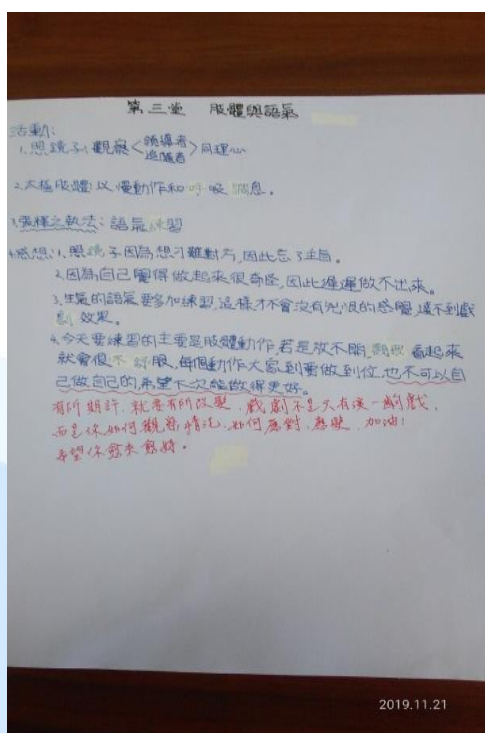 第三堂 肢體與語氣
活動:
1.照鏡子:觀察<領導者 追隨者>同理心
2.太極肢體:以慢動作和呼吸調息。
3.靈樣之執法:語氣練習
4.感想:1.照鏡子因為想刁難對方,因此忘了主旨。
2.因為自己覺得做起來很奇怪,因此遲遲做不出來。
3.生氣的語氣要多加練習,這樣才不會沒有兇狠的感覺,達不到戲
劇效果。
4.今天要練習的主要是肢體動作,若是放不開,觀眾看起來
就會很不舒服,每個動作大家到要做到位,也不可以自
己做自己的,希望下次能做得更好。
有所期許,就要有所改變,戲劇不是只有演一齣戲,
而是你如何觀察情況,如何應對、應變,加油!
希望你愈來愈好。
2019.11.21